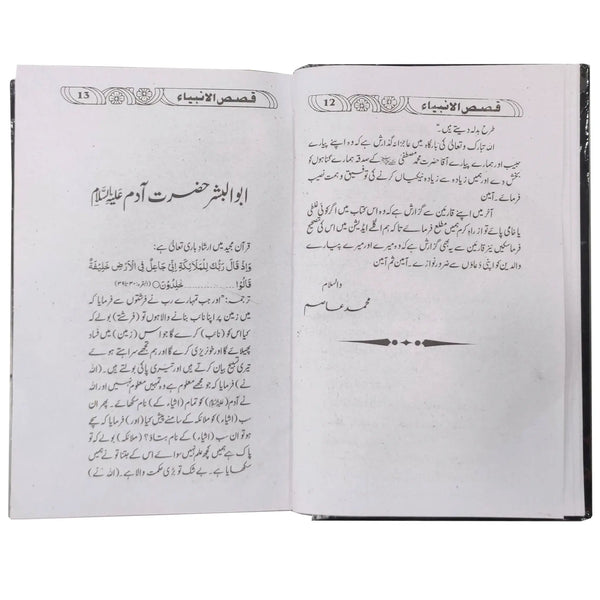 قصص الانبیاء 12
طرح بدلہ دیتے ہیں۔“
اللہ تبارک و تعالیٰ کی بارگاہ میں عاجزانہ گذارش ہے کہ وہ اپنے پیارے
حبیب اور ہمارے پیارے آقا حضرت محمد مصطفیٰ ﷺ کے صدقہ ہمارے گناہوں کو
بخش دے اور ہمیں زیادہ سے زیادہ نیکیاں کرنے کی توفیق و ہمت نصیب
فرمائے۔ آمین
آخر میں اپنے قارئین سے گزارش ہے کہ وہ اس کتاب میں اگر کوئی غلطی
یا خامی پائے تو ازراہِ کرم ہمیں مطلع فرمائے تا کہ ہم اگلے ایڈیشن میں اس کی تصحیح
فرما سکیں نیز قارئین سے یہ بھی گزارش ہے کہ وہ میرے اور میرے پیارے
والدین کو اپنی دعاؤں سے ضرور نوازے۔ آمین ثم آمین
والسلام
محمد عاصم
قصص الانبیاء 13
ابوالبشر حضرت آدم علیہ السلام
قرآن مجید میں ارشاد باری تعالیٰ ہے:
وَإِذْ قَالَ رَبُّكَ لِلْمَلَائِكَةِ إِنِّي جَاعِلٌ فِي الْأَرْضِ خَلِيفَةً
قَالُوْا ............ خٰلِدُوْنَ (البقرہ: ۳۰ تا ۳۹)
ترجمہ: ”اور جب تمہارے رب نے فرشتوں سے فرمایا کہ
میں زمین پر اپنا نائب بنانے والا ہوں تو (فرشتے) بولے کہ
کیا اس کو (نائب) کرے گا جو اس (زمین) میں فساد
پھیلائے گا اور خونریزی کرے گا اور ہم تجھے سراہتے ہوئے
تیری تسبیح بیان کرتے ہیں اور تیری پاکی بولتے ہیں۔ (اللہ
نے) فرمایا کہ جو مجھے معلوم ہے وہ تمہیں نہیں معلوم اور اللہ
نے آدم (علیہ السلام) کو تمام (اشیاء کے) نام سکھائے۔ پھر ان
سب (اشیاء) کو ملائکہ کے سامنے پیش کیا (اور) فرمایا کہ سچے
ہو تو ان سب (اشیاء) کے نام بتاؤ؟ (ملائکہ) بولے کہ تو
پاک ہے ہمیں کچھ علم نہیں سوائے اس کے جتنا تو نے ہمیں
سکھایا ہے۔ بے شک تو بڑی حکمت والا ہے۔ (اللہ نے)